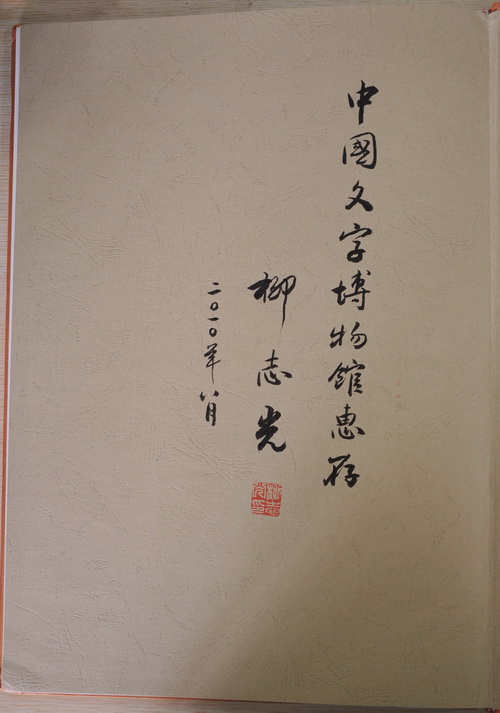 中國文字博物館惠存
柳志光
二〇一〇年八月